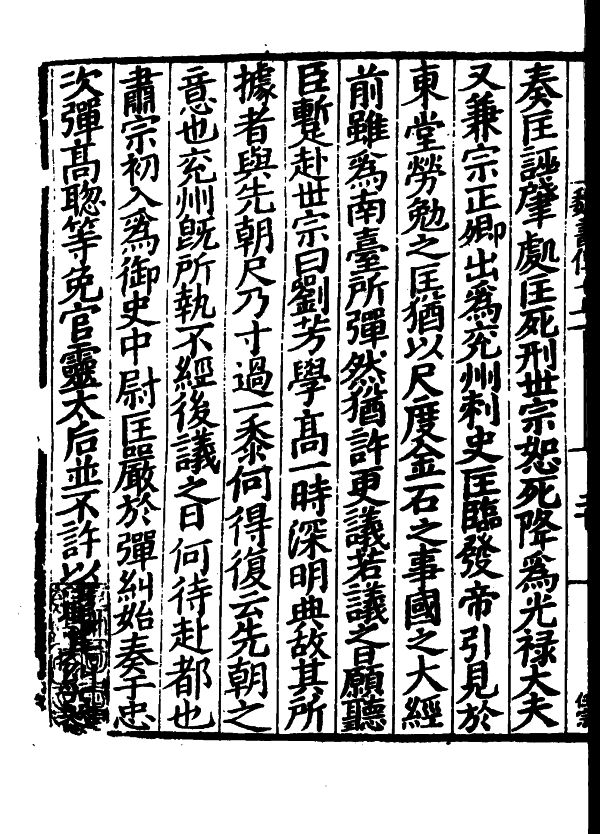 奏匡誣肇處匡死刑世宗恕死降爲光禄大夫
又兼宗正卿出爲兖州刺史匡臨發帝引見於
東堂勞勉之匡猶以尺度金石之事國之大經
前雖爲南臺所彈然猶許更議若議之日願聽
臣蹔赴世宗曰劉芳學髙一時深明典故其所
據者與先朝尺乃寸過一黍何得復云先朝之
意也兖州旣所執不經後議之日何待赴都也
肅宗初入爲御史中尉匡嚴於彈糾始奏于忠
次彈髙聦等免官靈太后並不許以